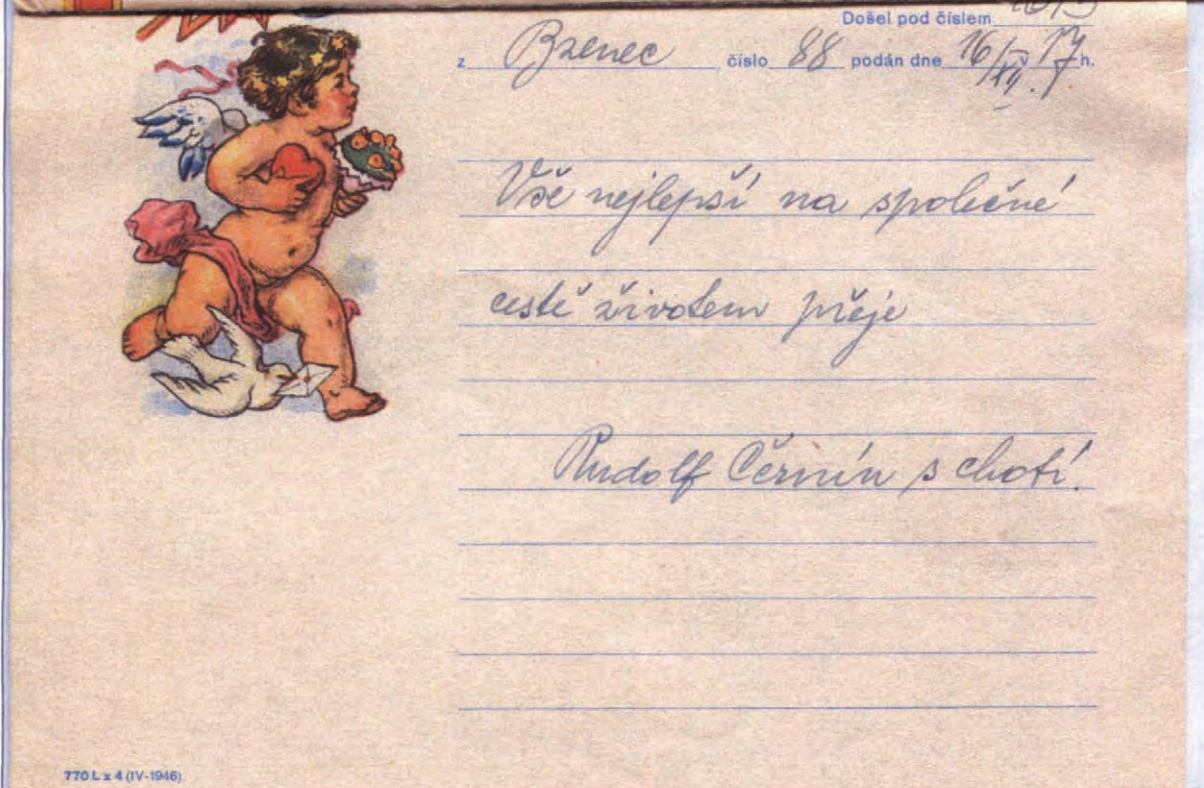 Došel pod číslem
z Bzenec číslo 88 podán dne 16/XII. v 17 h.
Vše nejlepší na společné
cestě životem přeje
Rudolf Černín s chotí.
770 L x 4 (IV-1946)